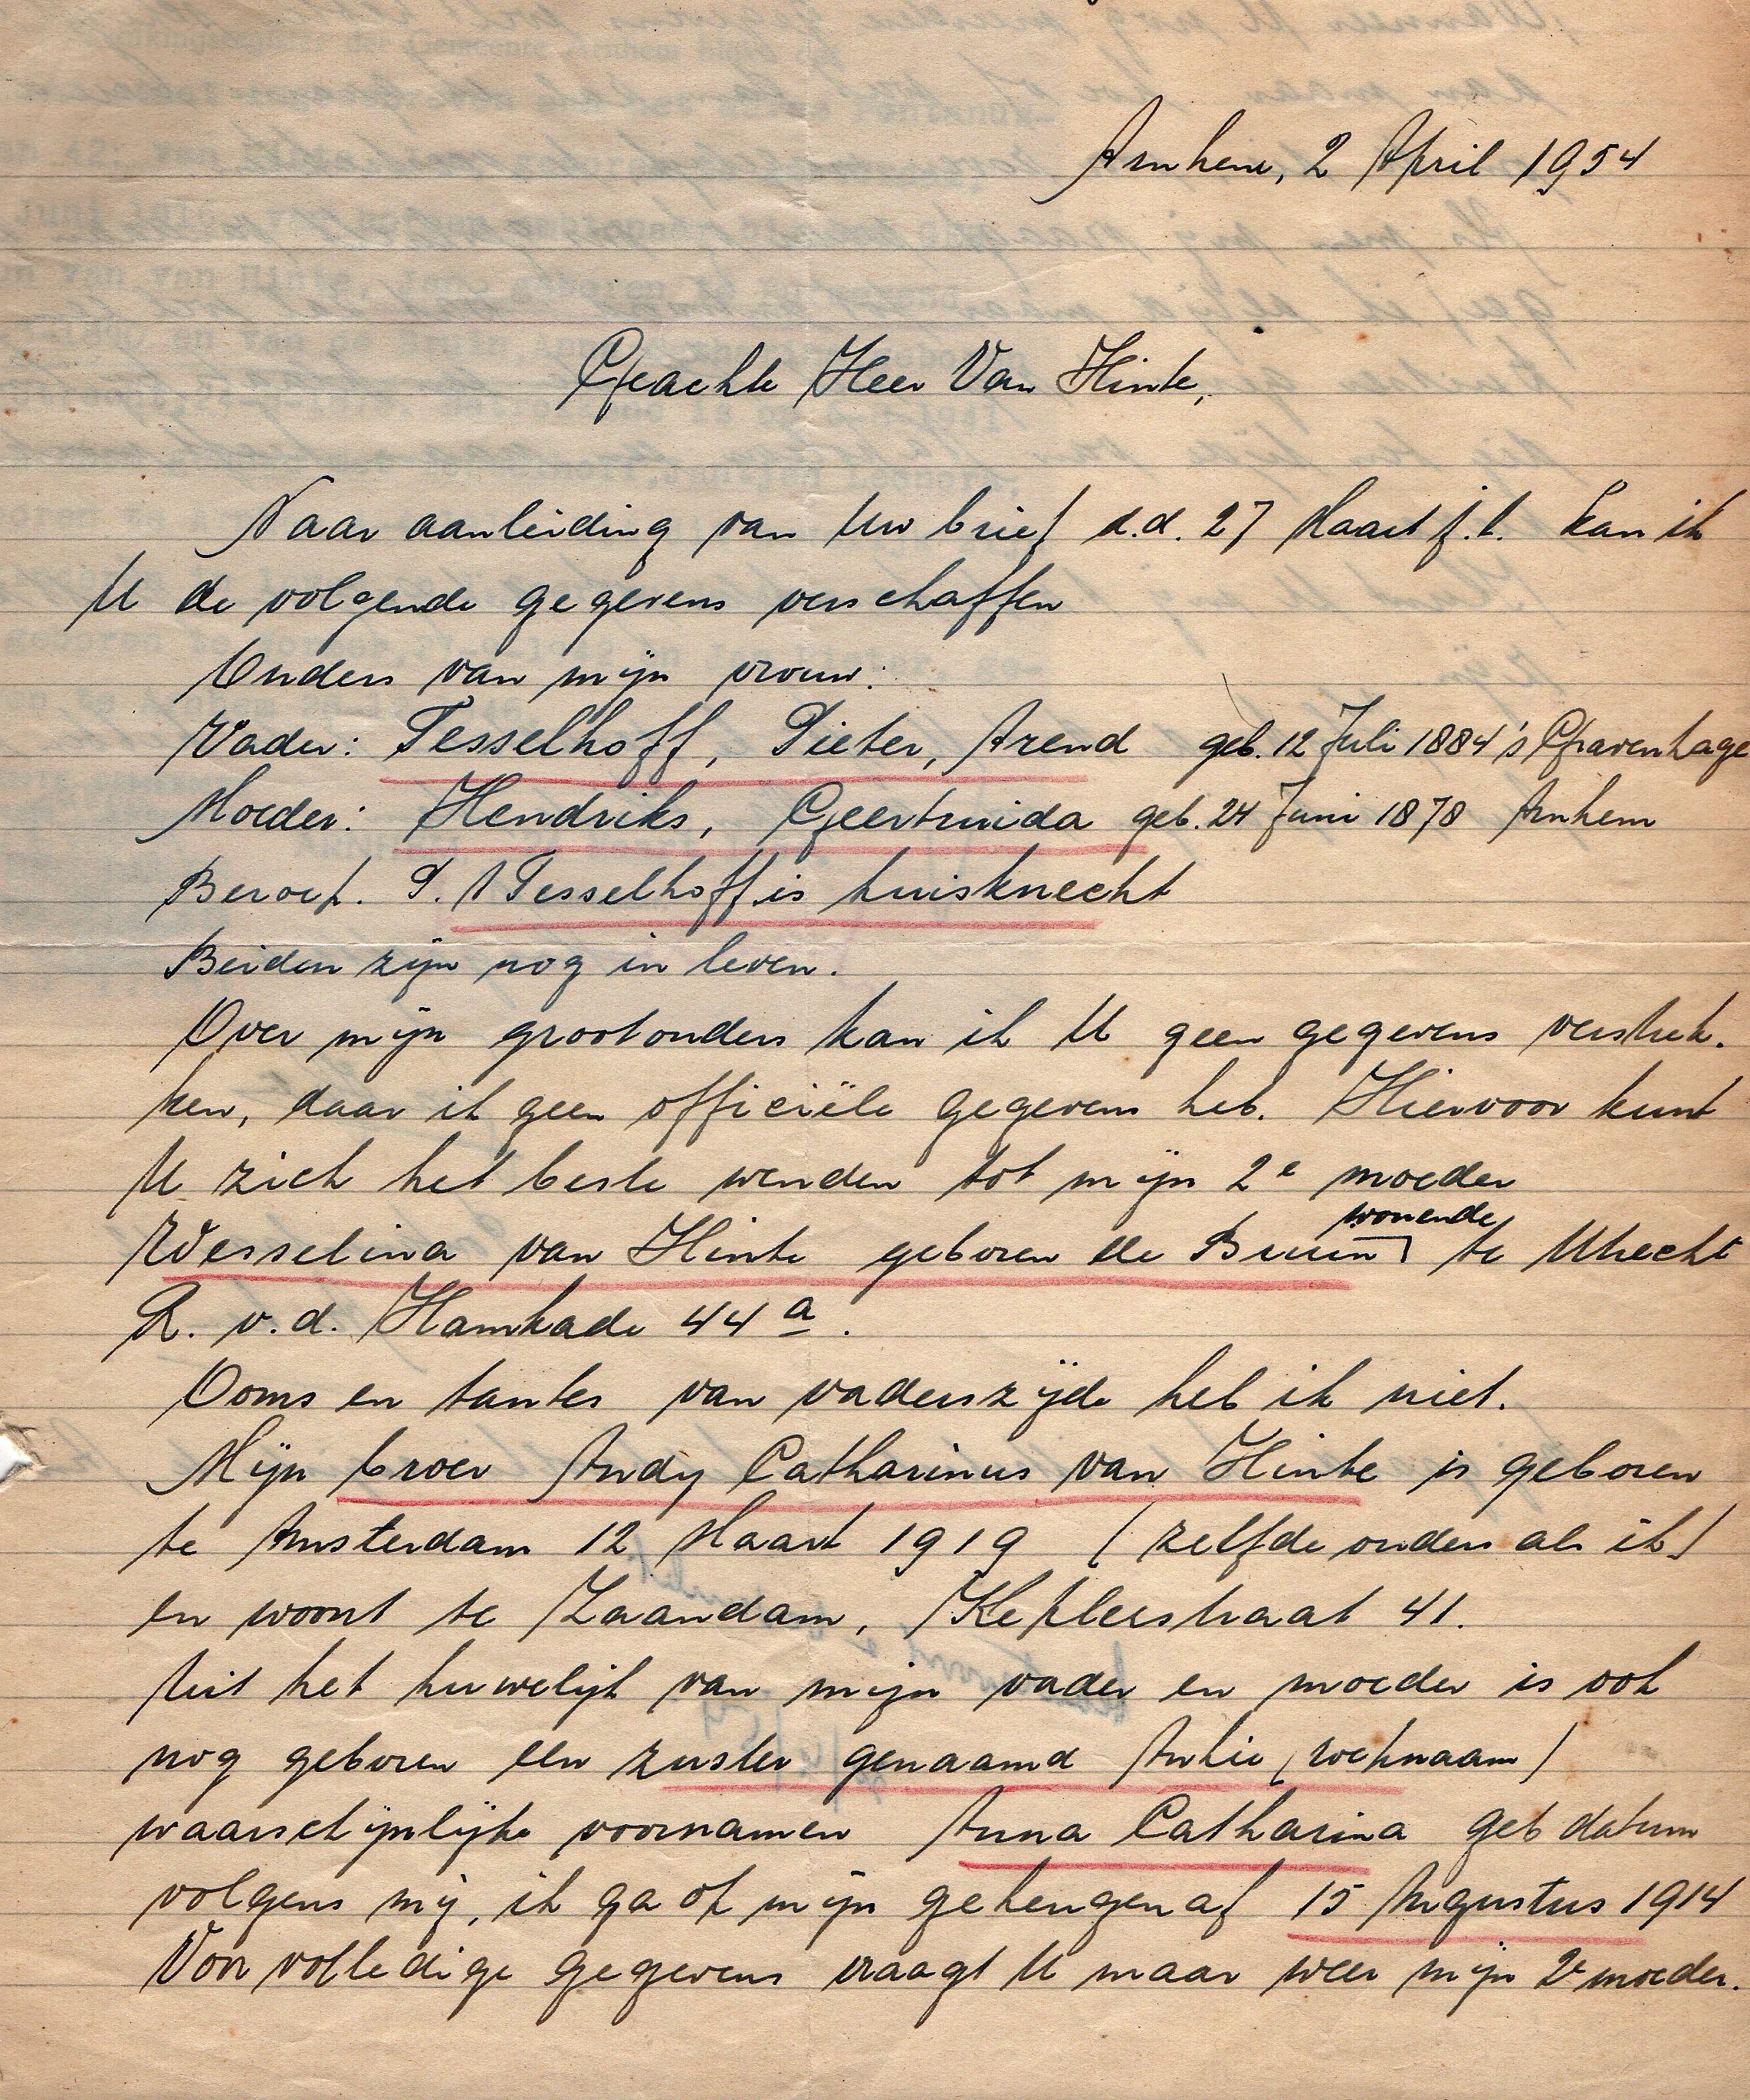 Arnhem, 2 April 1954
Geachte Heer Van Hinte,
Naar aanleiding van Uw brief d.d. 27 Maart j.l. kan ik
U de volgende gegevens verschaffen
Ouders van mijn vrouw:
Vader: Tesselhoff, Pieter, Arend geb. 12 Juli 1884 's Gravenhage
Moeder: Hendriks, Geertruida geb. 24 Juni 1878 Arnhem
Beroep. P. A Tesselhoff is huisknecht
Beiden zijn nog in leven.
Over mijn grootouders kan ik U geen gegevens verstrek-
ken, daar ik geen officiële gegevens heb. Hiervoor kunt
U zich het beste wenden tot mijn 2e moeder
wonende
Wesselina van Hinte geboren de Bruin te Utrecht
R. v.d. Hamkade 44a.
Ooms en tantes van vaderszijde heb ik niet.
Mijn broer Andy Catharinus van Hinte is geboren
te Amsterdam 12 Maart 1919 (zelfde ouders als ik)
en woont te Zaandam, Keplerstraat 41.
Uit het huwelijk van mijn vader en moeder is ook
nog geboren een zuster genaamd Ankie (roepnaam)
waarschijnlijke voornamen Anna Catharina geb datum
volgens mij, ik ga op mijn geheugen af 15 Augustus 1914
Voor volledige gegevens vraagt U maar weer mijn 2e moeder.